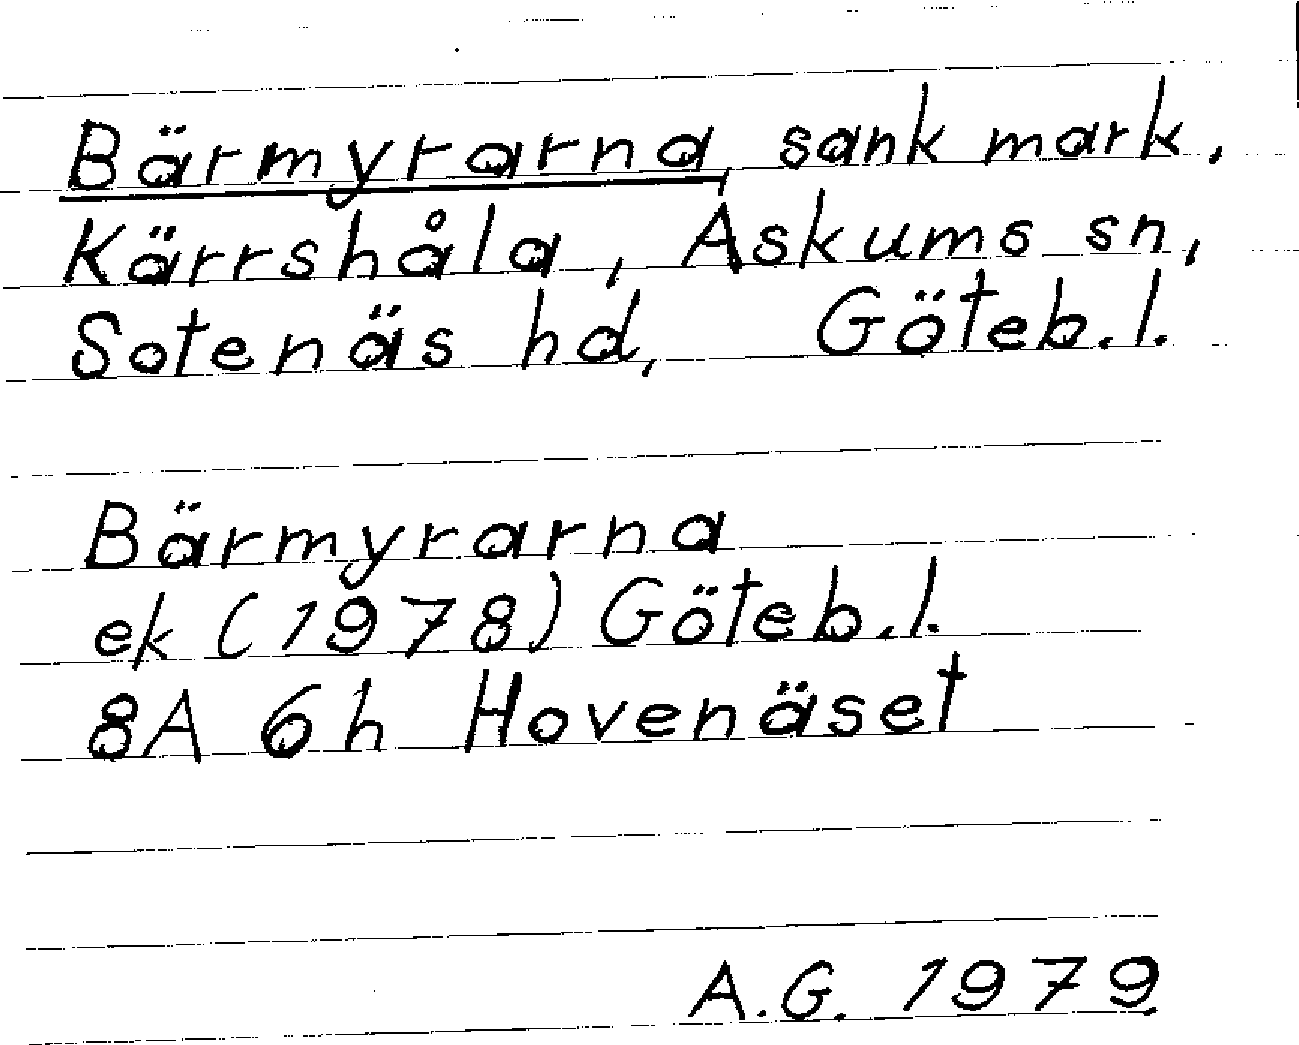 Bärmyrarna, sank mark,
Kärrshåla, Askums sn,
Sotenäs hd, Göteb. l.
Bärmyrarna
ek (1978) Göteb. l.
8A 6h Hovenäset
A.G. 1979.